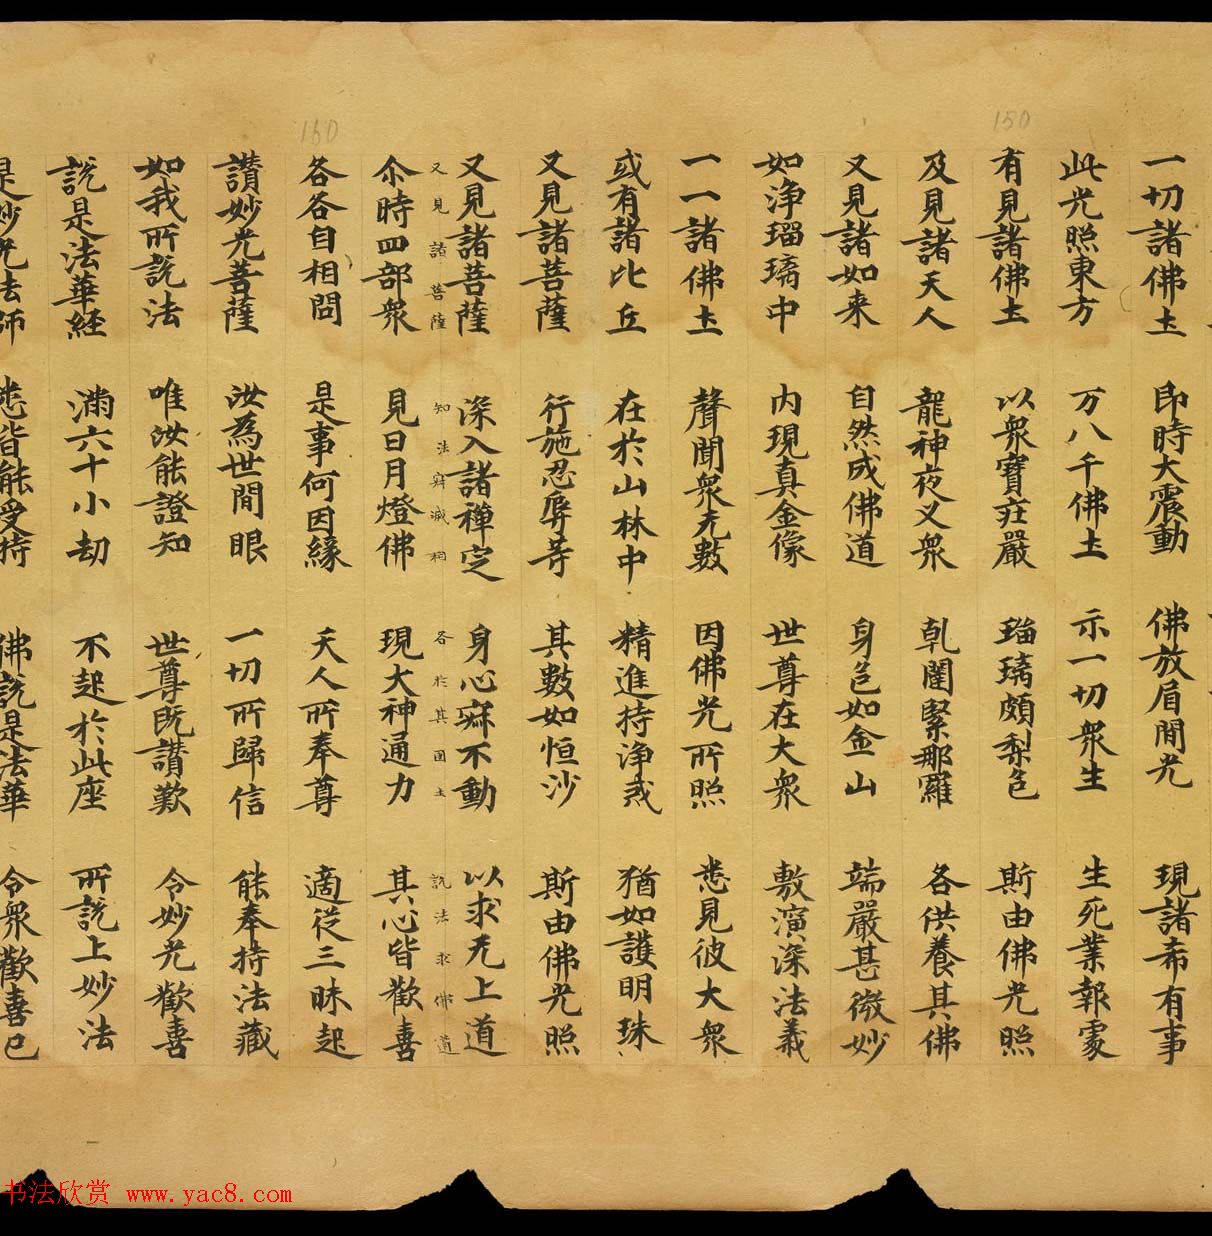 150
160
一切諸佛土 即時大震動 佛放眉間光 現諸希有事
此光照東方 万八千佛土 示一切衆生 生死業報處
有見諸佛土 以衆寶莊嚴 瑠璃頗梨色 斯由佛光照
及見諸天人 龍神夜叉衆 乹闥緊那羅 各供養其佛
又見諸如来 自然成佛道 身色如金山 端嚴甚微妙
如浄瑠璃中 内現真金像 世尊在大衆 敷演深法義
一一諸佛土 聲聞衆无數 因佛光所照 悉見彼大衆
或有諸比丘 在於山林中 精進持浄戒 猶如護明珠
又見諸菩薩 行施忍辱等 其數如恒沙 斯由佛光照
又見諸菩薩 深入諸禪定 身心寂不動 以求无上道
又見諸菩薩 知法寂滅相 各於其国土 説法求佛道
尒時四部衆 見日月燈佛 現大神通力 其心皆歡喜
各各自相問 是事何因緣 天人所奉尊 適從三昧起
讃妙光菩薩 汝為世間眼 一切所歸信 能奉持法藏
如我所説法 唯汝能證知 世尊既讃歎 令妙光歡喜
説是法華経 滿六十小劫 不起於此座 所説上妙法
是妙光法師 悉皆能受持 佛説是法華 令衆歡喜已
书法欣赏 www.yac8.com